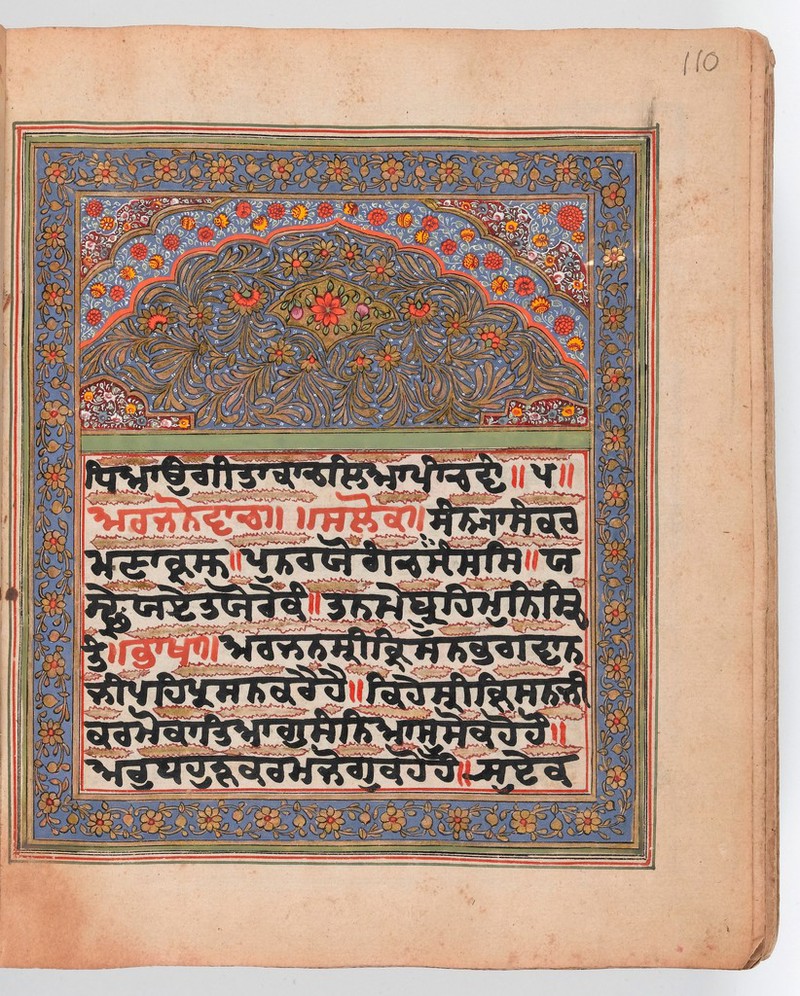 ਧਿਆਉਗੀਤਾਕਾਚਲਿਆਪੰਚਵੇ ॥ ੫॥
ਅਰਜਨੋਵਾਚ॥ ॥ਸਲੋਕ॥ ਸੰਨਆਸੰਕਰ
ਮਣਾਕ੍ਰਸਨ॥ਪੁਨਰਯੋਗੰਚਸੰਸਸਿ॥ ਯ
ਏਤਯੋਰੇਕੰ॥ ਤਨਮੇਬ੍ਰੂਹਿਸੁਨਿਸ੍ਚਿ
ਤੰ॥ਭਾਖਾ॥ਅਰਜਨਸ੍ਰੀਕ੍ਰਿਸਨਭਗਵਾਨ
ਜੀਪਹਿਪ੍ਰਸਨਕਰੈਹੈ॥ਕਿਹੇਸ੍ਰੀਕ੍ਰਿਸਨਜੀ
ਕਰਮੋਕਾਤਿਆਗੁਸੰਨਿਆਸੁਸੋਕਹੋਹੋ॥
ਅਰੁਬਹੁੜਕਰਮਜੋਗੁਕਹੋਹੋ॥ਸੁਏਕ
110